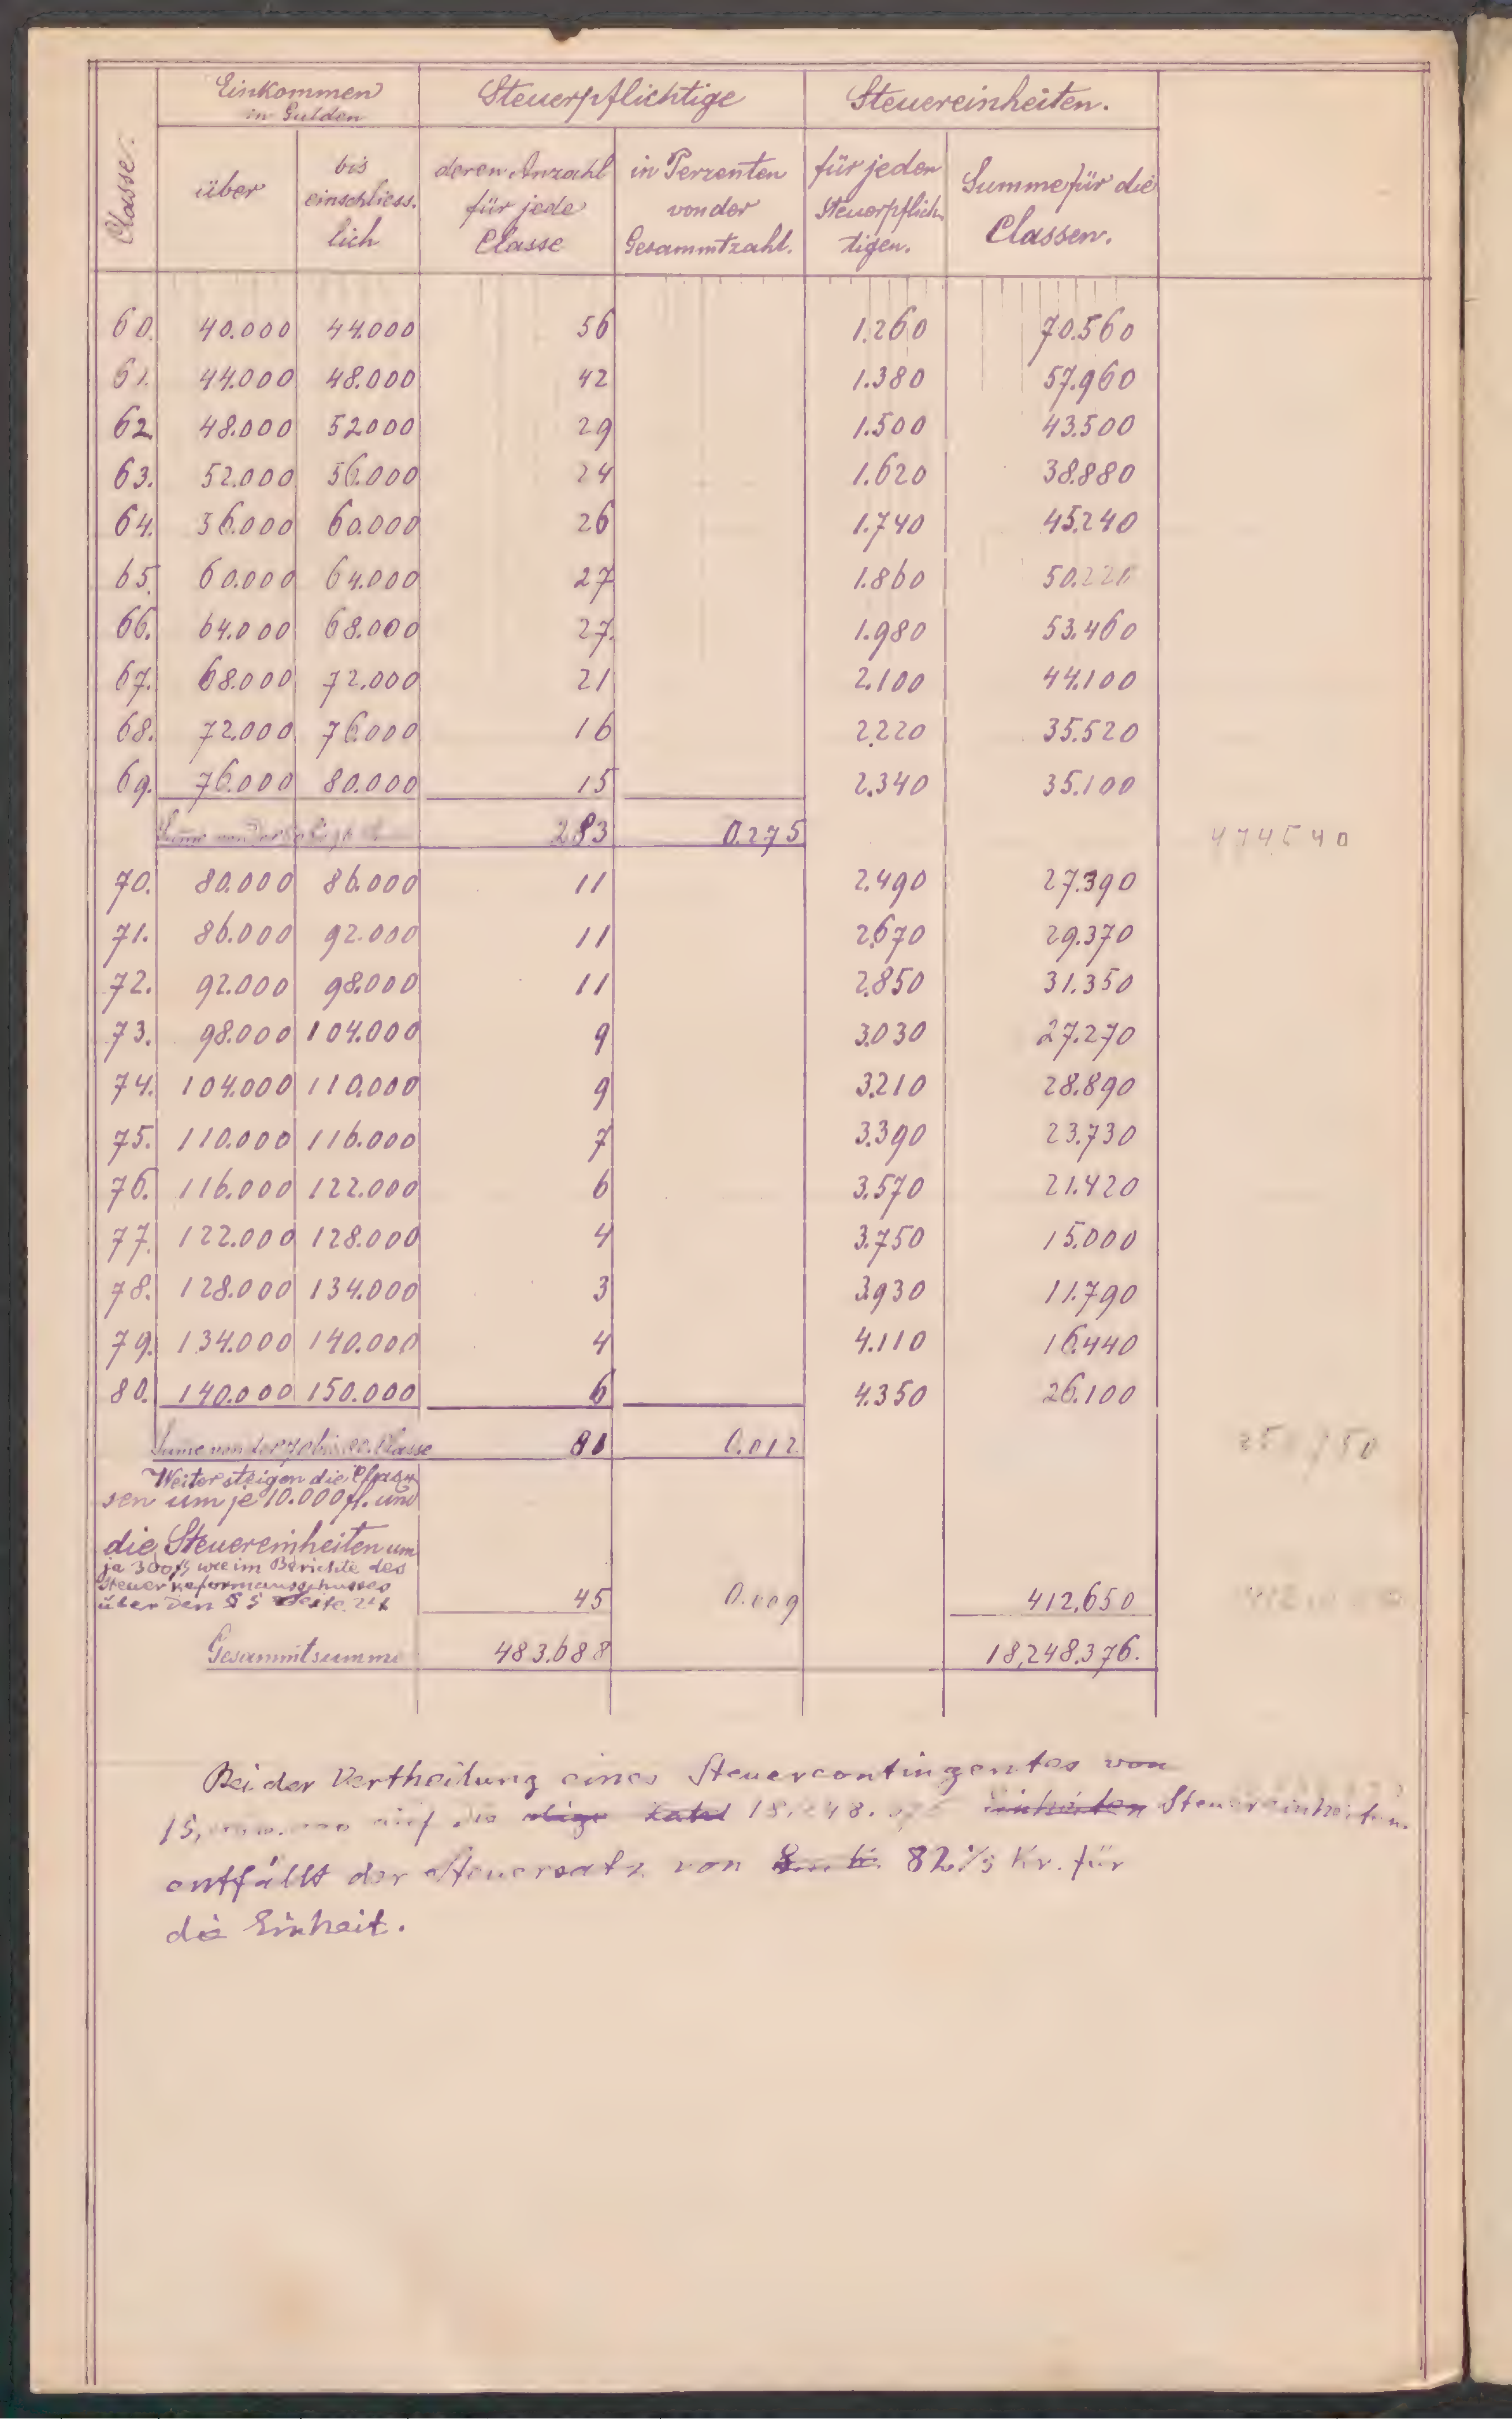 Classe.
Einkommen
in Gulden
Steuerpflichtige
Steuereinheiten.
über
bis
einschliess.
lich
deren Anzahl
für jede
Classe
in Perzenten
von der
Gesammtzahl.
für jeden
Steuerpflich
tigen.
Summe für die
Classen.
60. 40.000 44.000 56 1.260 70.560
61. 44.000 48.000 42 1.380 57.960
62. 48.000 52000 29 1.500 43.500
63. 52.000 56.000 24 1.620 38.880
64. 56.000 60.000 26 1.740 45.240
65. 60.000 64.000 27 1.860 50.220
66. 64.000 68.000 27. 1.980 53.460
67. 68.000 72.000 21 2.100 44.100
68. 72.000 76.000 16 2.220 35.520
69. 76.000 80.000 15 2.340 35.100
Sume von der 283 0.275 474540
70. 80.000 86.000 11 2.490 27.390
71. 86.000 92.000 11 2.670 29.370
72. 92.000 98.000 11 2.850 31.350
73. 98.000 104.000 9 3.030 27.270
74. 104.000 110.000 9 3.210 28.890
75. 110.000 116.000 7 3.390 23.730
76. 116.000 122.000 6 3.570 21.420
77. 122.000 128.000 4 3.750 15.000
78. 128.000 134.000 3 3930 11.790
79. 134.000 140.000 4 4.110 16.440
80. 140.000 150.000 6 4.350 26.100
Sume von der 70 bis 80. Classe 81 0.012
Weiter steigen die Clas
sen um je 10.000 fl. und
die Steuereinheiten um
je 300 wie im Berichte des
Steuerreformausschusses
über den § 5 Seite 45 0.009 412,650
Gesammtsumme 483.688 18,248.376.
Bei der Vertheilung eines Steuercontingentes von
15, auf die 18.248. Einheiten Steuereinheiten
entfällt der Steuersatz von 82 1/5 Kr. für
die Einheit.